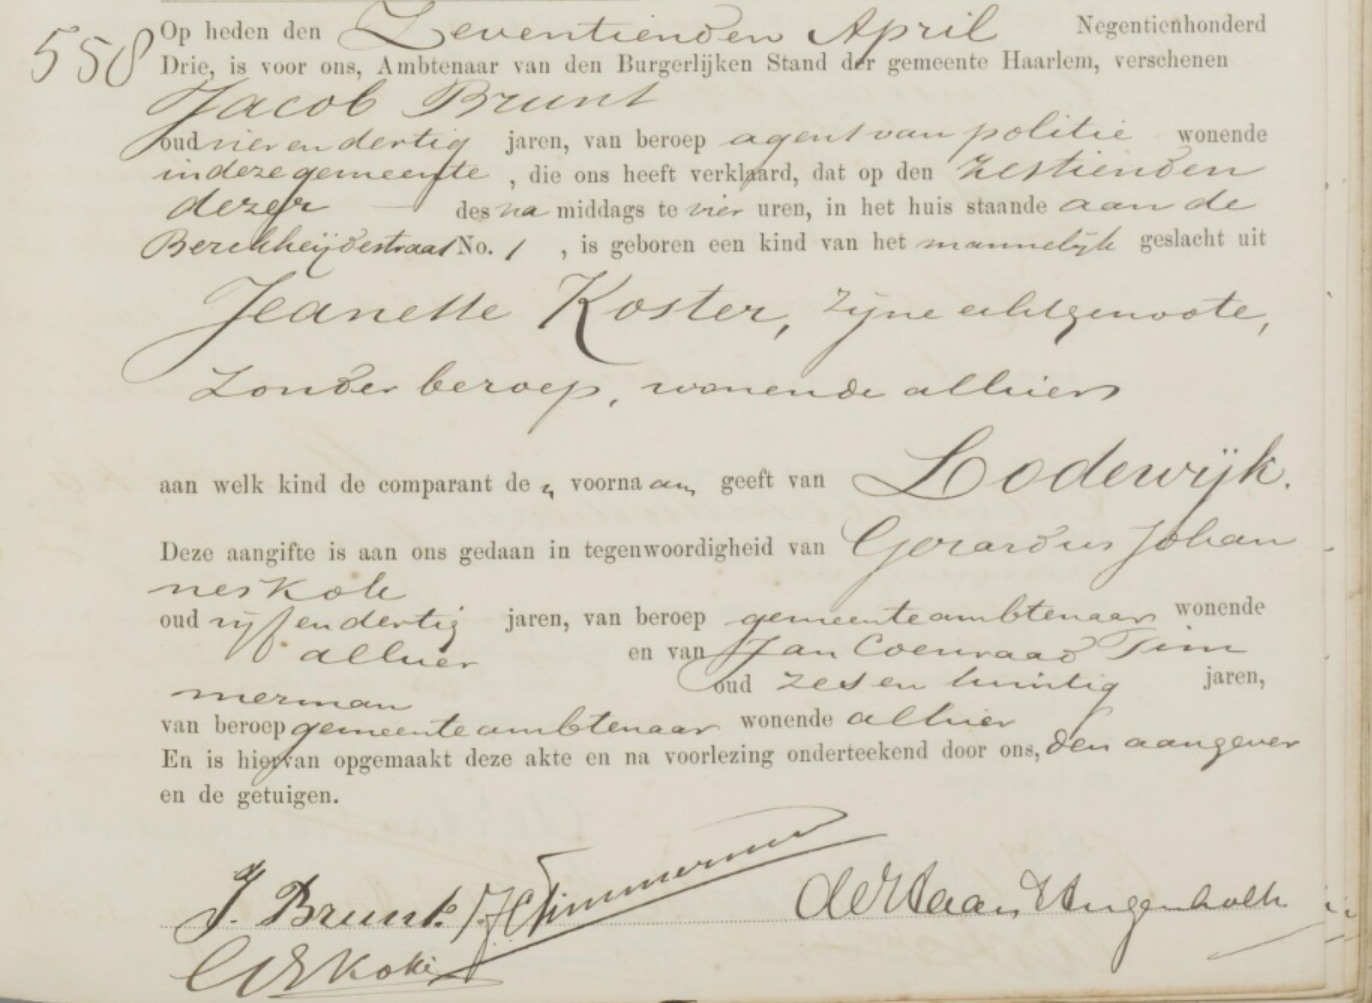 558
Op heden den Zeventienden April Negentienhonderd
Drie, is voor ons, Ambtenaar van den Burgerlijken Stand der gemeente Haarlem, verschenen
Jacob Brunt
oud vier en dertig jaren, van beroep agent van politie wonende
in deze gemeente , die ons heeft verklaard, dat op den zestienden
dezer des na middags te vier uren, in het huis staande aan de
Berckheijdestraat No. 1 , is geboren een kind van het mannelijk geslacht uit
Jeanette Koster, zijne echtgenoote,
zonder beroep, wonende alhier
aan welk kind de comparant de n voornaam geeft van Lodewijk.
Deze aangifte is aan ons gedaan in tegenwoordigheid van Gerardus Johan
nes Kok
oud vijf en dertig jaren, van beroep gemeenteambtenaar wonende
alhier en van Jan Coenraad Tim
merman oud zes en twintig jaren,
van beroep gemeenteambtenaar wonende alhier
En is hiervan opgemaakt deze akte en na voorlezing onderteekend door ons, den aangever
en de getuigen.
J. Brunt. JCTimmerman de Haan Hugenholtz